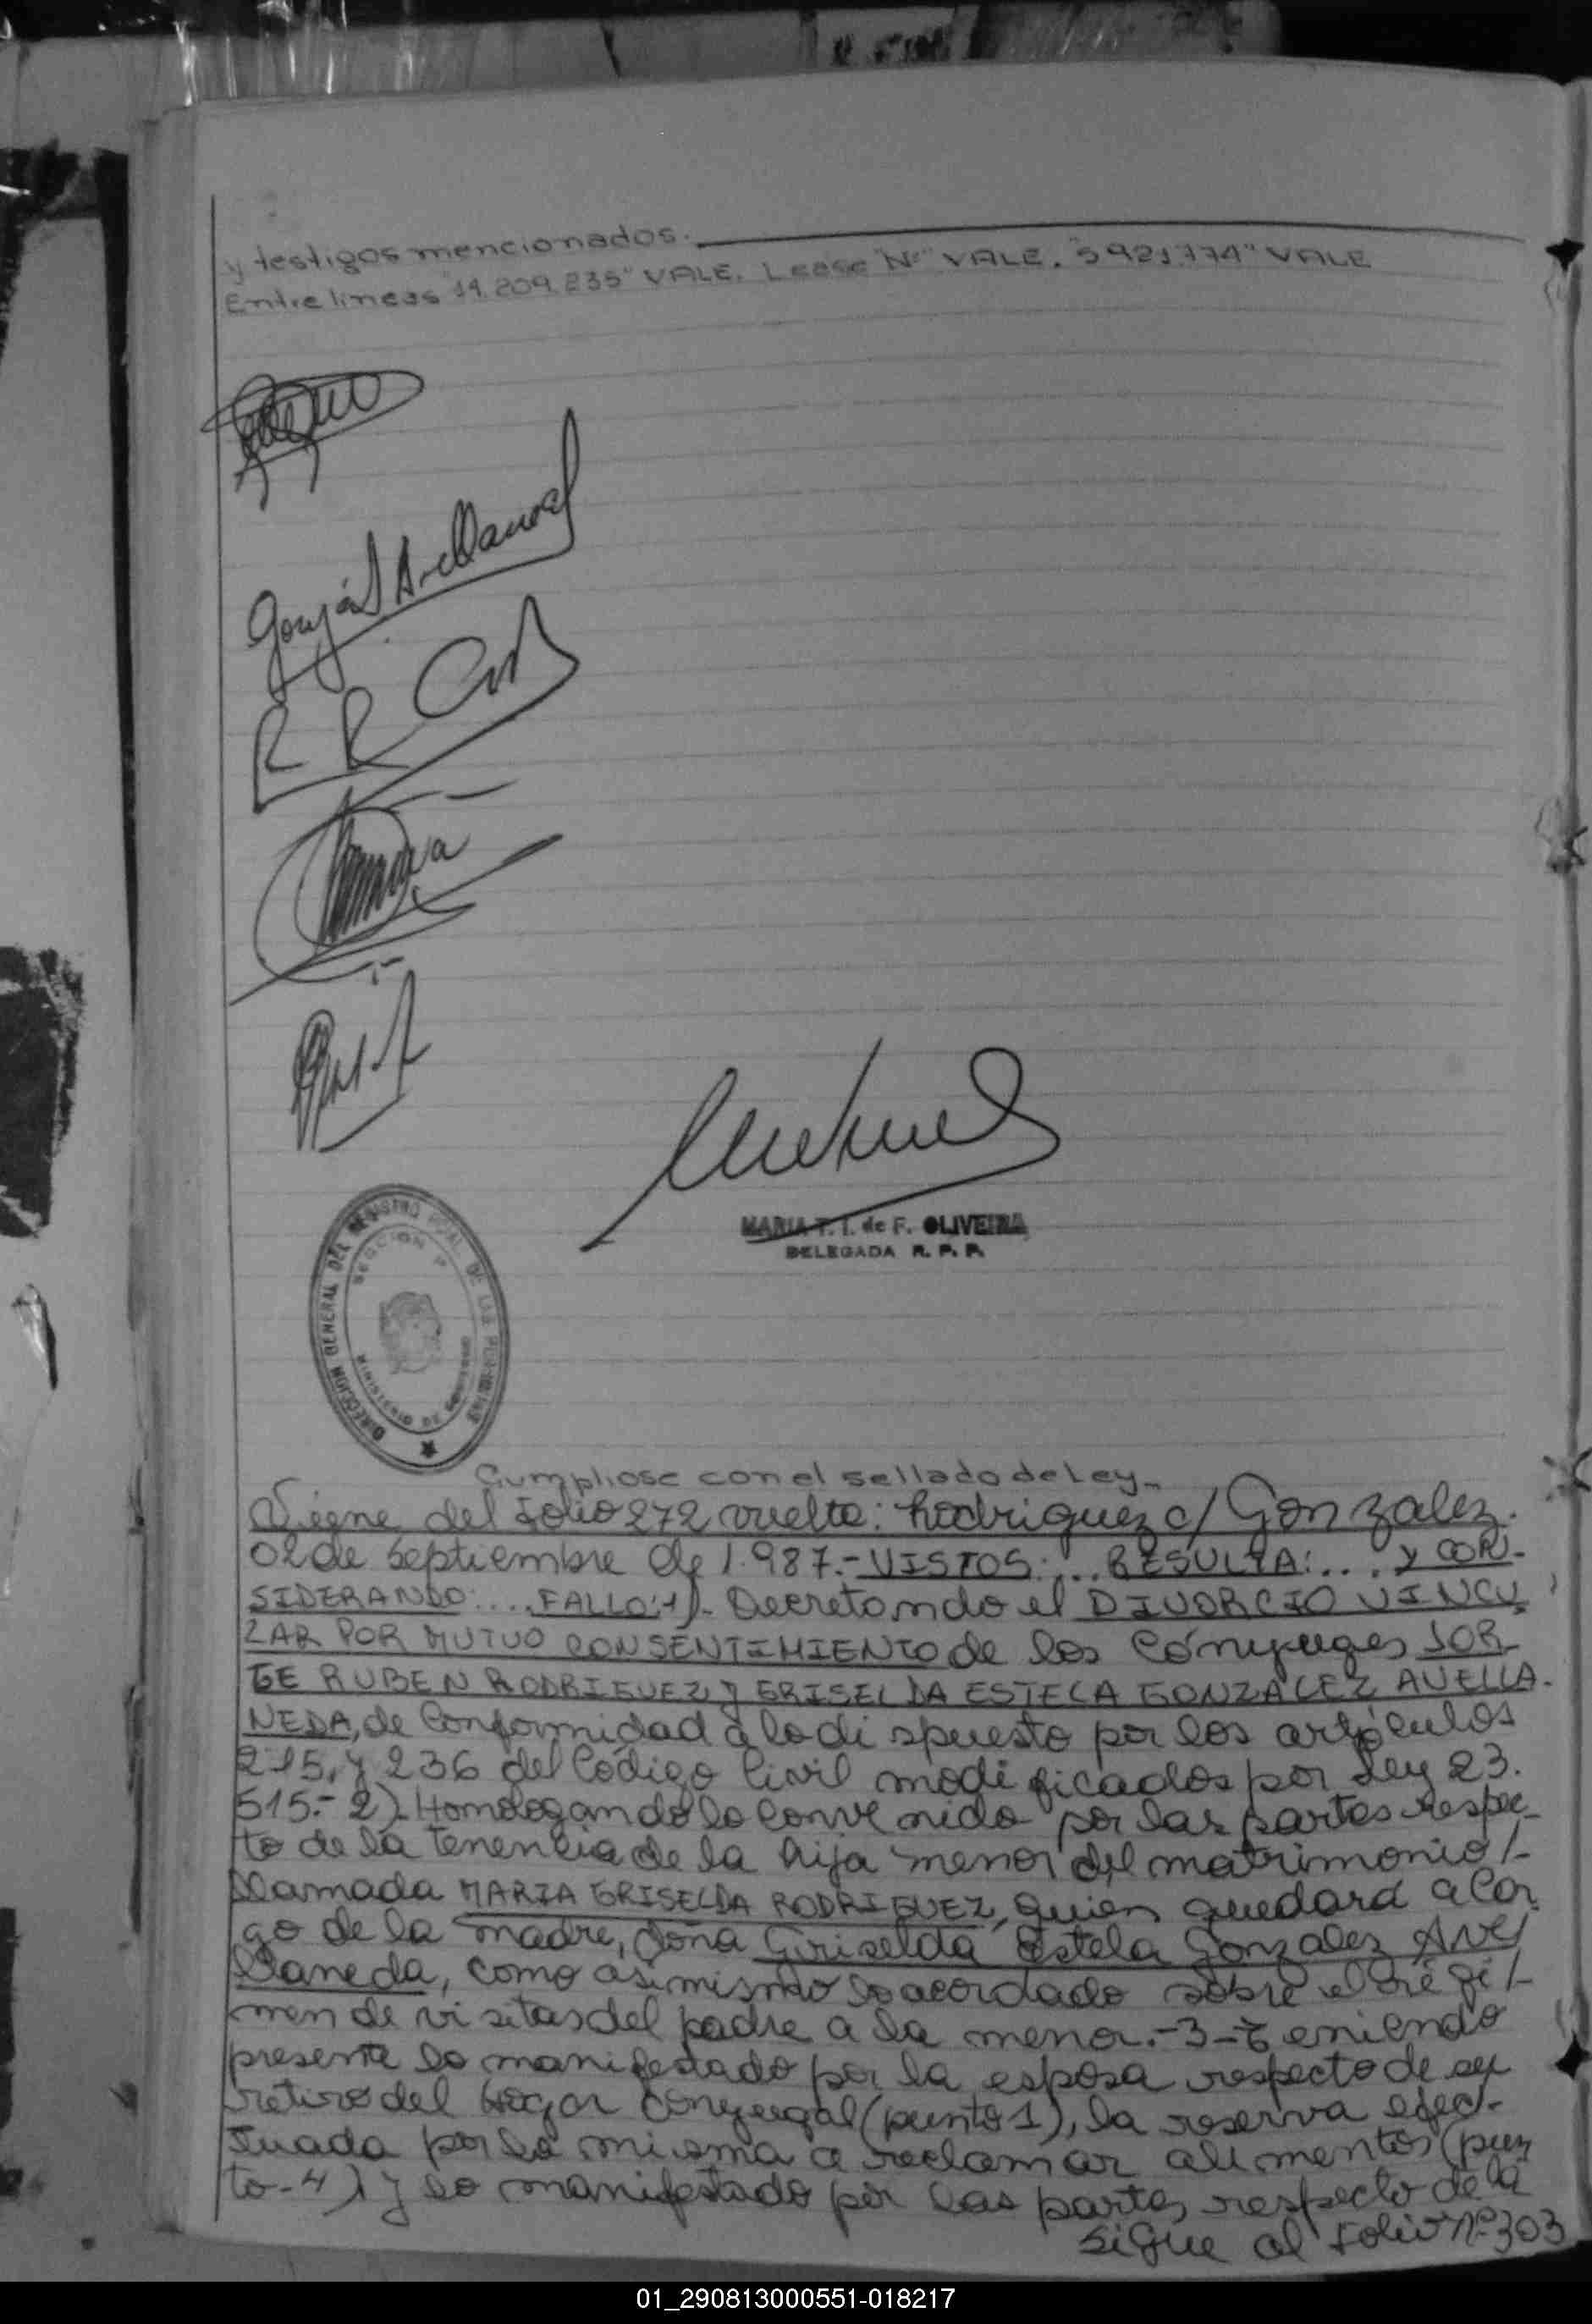 y testigos mencionados.
Entre lineas "14.209.235" VALE. Lease "Nº" VALE. "5921.774" VALE
MARIA T. I. de F. OLIVEIRA
DELEGADA R. P. P.
DIRECCION GENERAL DEL REGISTRO PCIAL. DE LAS PERSONAS
SECCION P
MINISTERIO DE GOBIERNO
Cumpliose con el sellado de Ley.-
Viene del Folio 272 vuelta: Rodriguez c/ Gonzalez.
02 de Septiembre de 1.987.- VISTOS:... RESULTA:.... y CON-
SIDERANDO:.... FALLO: 1)- Decretando el DIVORCIO VINCU
LAR POR MUTUO CONSENTIMIENTO de los Cónyuges JOR-
GE RUBEN RODRIGUEZ y GRISELDA ESTELA GONZALEZ AVELLA-
NEDA, de Conformidad a lo dispuesto por los artículos
215, y 236 del Código Civil modificados por Ley 23.
515.- 2)- Homologando lo Convenido por las partes respec-
to de la tenencia de la hija menor del matrimonio/-
llamada MARIA GRISELDA RODRIGUEZ, quien quedará a Car
go de la madre, doña Griselda Estela Gonzalez Ave/
llaneda, como asimismo lo acordado sobre el régi/-
men de visitas del padre a la menor.- 3- Teniendo
presente lo manifestado por la esposa respecto de su
retiro del Hogar Conyugal (punto 1), la reserva efec-
tuada por la misma a reclamar alimentos (pun
to-4) y lo manifestado por las partes respecto de la
Sigue al Folio Nº 303
01_290813000551-018217